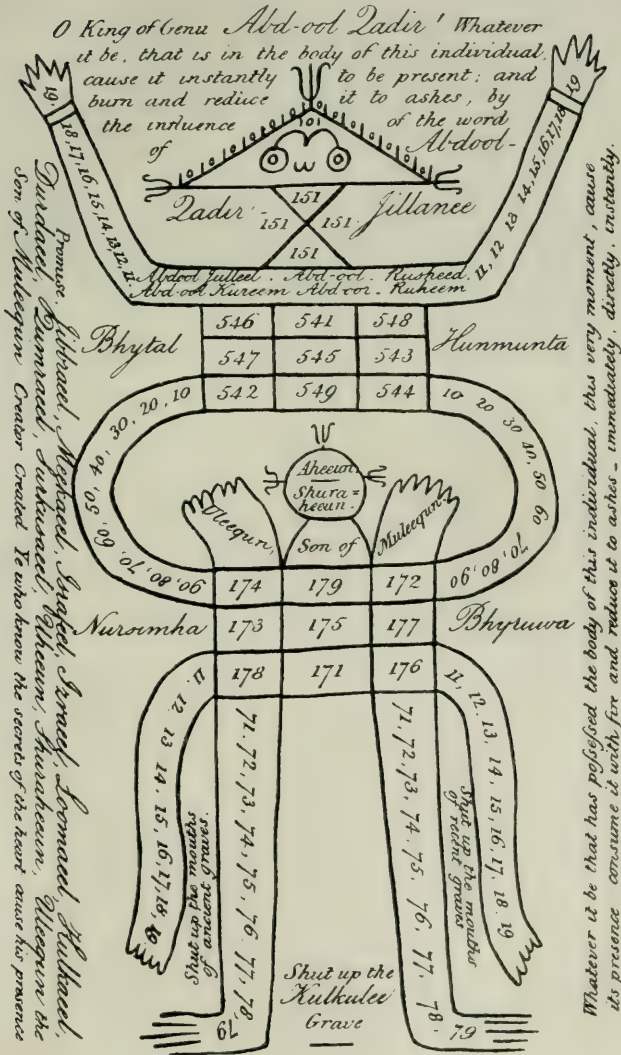 O King of Genii Abd-ool Qadir! Whatever
it be, that is in the body of this individual,
cause it instantly to be present; and
burn and reduce it to ashes, by
the influence of the word
of Abdool-
Qadir Jillanee
151
151 151
151
19
18, 17, 16, 15, 14, 13, 12, 11
19
11, 12 13 14, 15, 16, 17, 18
Abdool Julleel. Abd-ool. Rusheed.
Abd-ool Kureem Abd-ool. Ruheem
Bhytal
Hunmunta
546 541 548
547 545 543
542 549 544
10, 20, 30, 40, 50, 60, 70, 80, 90
10 20 30 40, 50 60 70, 80, 90
Aheeun.
Shura=
heeun.
Uleequn, Son of Muleequn.
174 179 172
Nursimha
173 175 177
Bhyruwa
178 171 176
11, 12, 13 14, 15, 16, 17, 18, 19
11, 12. 13, 14. 15, 16, 17, 18. 19
71, 72, 73, 74, 75, 76 77, 78, 79
71, 72, 73, 74. 75, 76, 77, 78. 79
Shut up the mouths
of ancient graves.
Shut up the mouths
of recent graves
Shut up the
Kulkulee
Grave
Promise Jibbraeel, Meekaeel, Israfeel, Izraeel, Loomaeel, Kulkaeel,
Durdaeel, Uheeun, Shuraheeun, Uleequn the
Son of Muleequn Creator Created Ye who know the secrets of the heart cause his presence
Whatever it be that has possessed the body of this individual, this very moment, cause
its presence consume it with fire and reduce it to ashes - immediately, directly, instantly.